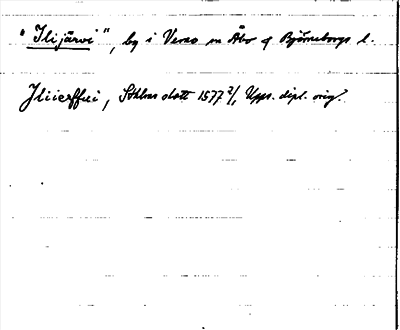 "Ilijärvi", by i Vesso sn Åbo o Björneborgs l.
Jliierffui, Sthlms slott 1577 2/1, Upps. dipl. orig.